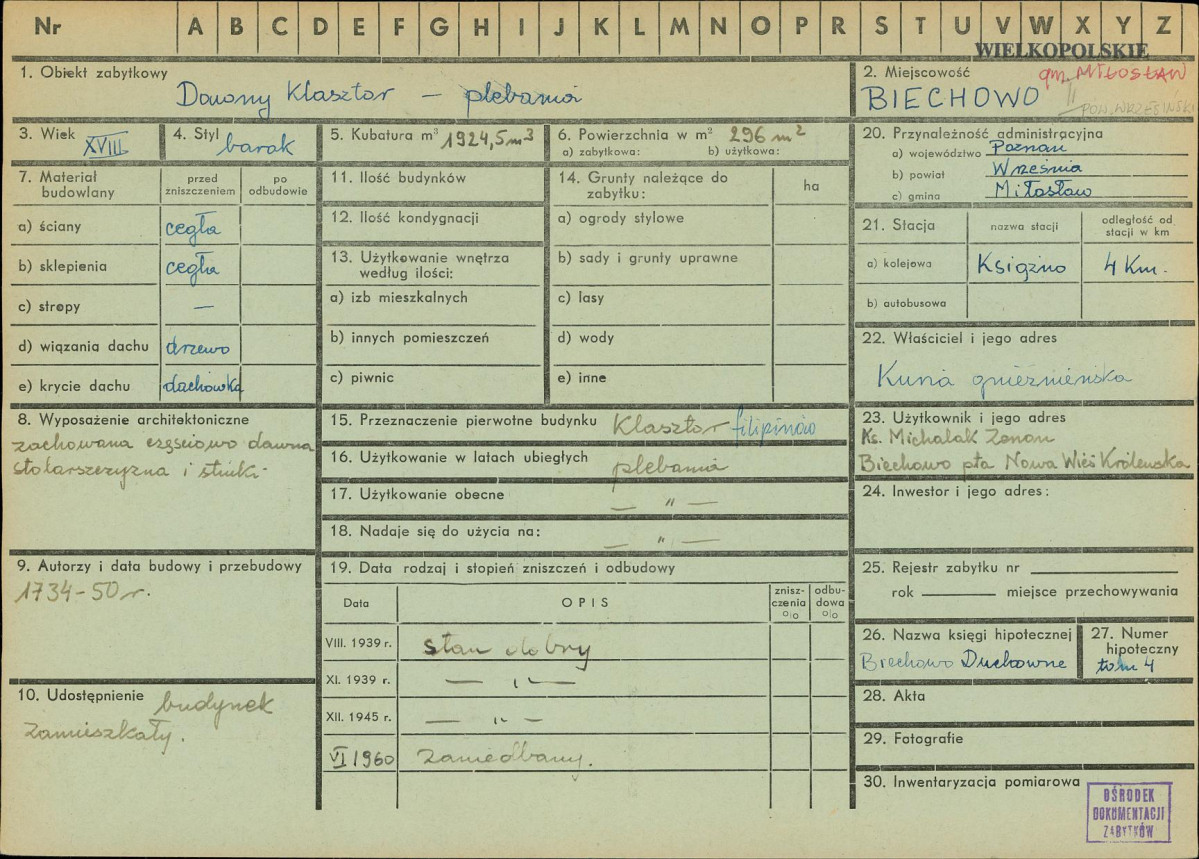 Nr A B C D E F G H I J K L M N O P R S T U V W X Y Z
WIELKOPOLSKIE
1. Obiekt zabytkowy
Dawny Klasztor – plebania
2. Miejscowość
gm. MIŁOSŁAW
BIECHOWO
POW. WRZESIŃSKI
3. Wiek XVIII
4. Styl barok
5. Kubatura m³ 1924,5 m³
6. Powierzchnia w m² 296 m²
a) zabytkowa: b) użytkowa:
7. Materiał budowlany
przed zniszczeniem
po odbudowie
a) ściany cegła
b) sklepienia cegła
c) stropy —
d) wiązania dachu drzewo
e) krycie dachu dachówka
8. Wyposażenie architektoniczne
zachowana częściowo dawna
stolarszczyzna i stiuki
9. Autorzy i data budowy i przebudowy
1734-50 r.
10. Udostępnienie budynek
zamieszkały.
11. Ilość budynków
12. Ilość kondygnacji
13. Użytkowanie wnętrza
według ilości:
a) izb mieszkalnych
b) innych pomieszczeń
c) piwnic
14. Grunty należące do
zabytku:
ha
a) ogrody stylowe
b) sady i grunty uprawne
c) lasy
d) wody
e) inne
15. Przeznaczenie pierwotne budynku Klasztor filipinów
16. Użytkowanie w latach ubiegłych plebania
17. Użytkowanie obecne — „ —
18. Nadaje się do użycia na: — „ —
19. Data rodzaj i stopień zniszczeń i odbudowy
Data
OPIS
znisz-
czenia
%
odbu-
dowa
%
VIII. 1939 r. stan dobry
XI. 1939 r. — „ —
XII. 1945 r. — „ —
VI 1960 zaniedbany.
20. Przynależność administracyjna
a) województwo Poznań
b) powiat Września
c) gmina Miłosław
21. Stacja
nazwa stacji
odległość od
stacji w km
a) kolejowa Książno 4 Km.
b) autobusowa
22. Właściciel i jego adres
Kuria gnieźnieńska
23. Użytkownik i jego adres
Ks. Michalak Zenon
Biechowo pta Nowa Wieś Królewska
24. Inwestor i jego adres:
25. Rejestr zabytku nr
rok miejsce przechowywania
26. Nazwa księgi hipotecznej
Biechowo Duchowne
27. Numer
hipoteczny
tom 4
28. Akta
29. Fotografie
30. Inwentaryzacja pomiarowa
OŚRODEK
DOKUMENTACJI
ZABYTKÓW